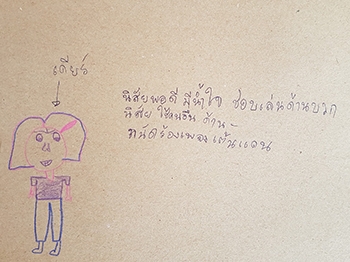 เดียร์
นิสัยพอดี มีน้ำใจ ชอบเล่นด้านบวก
นิสัย ใช้คนอื่น ด้าน-
ถนัดร้องเพลง เต้น